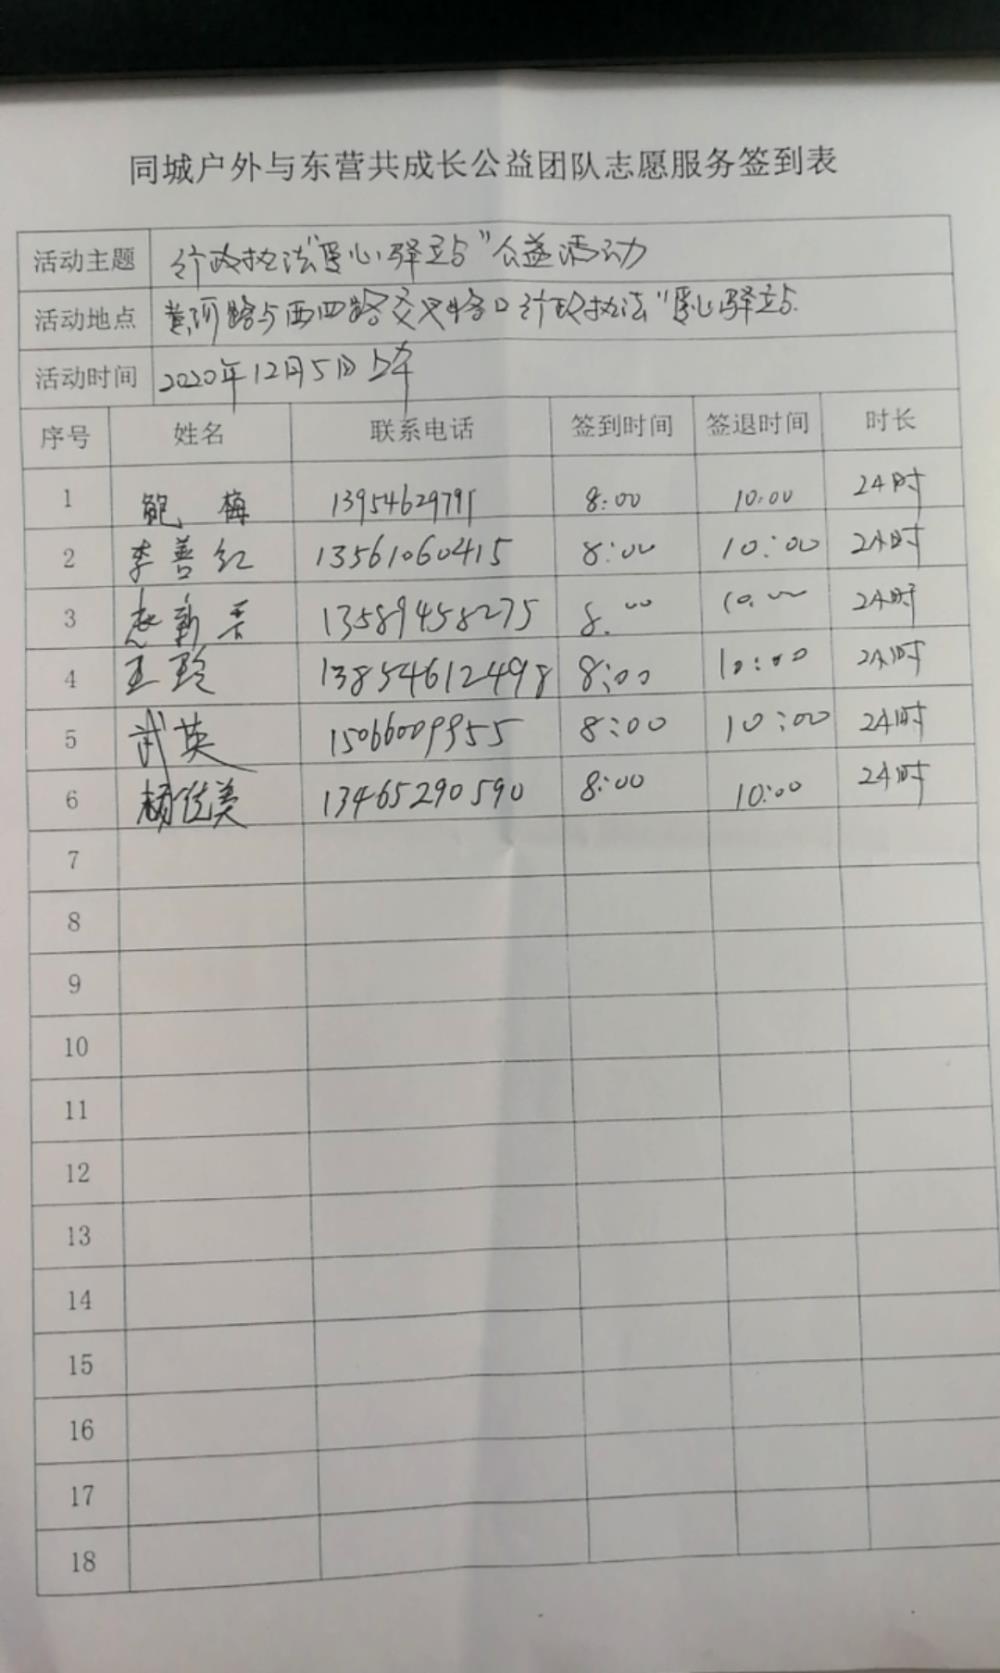 同城户外与东营共成长公益团队志愿服务签到表
活动主题 行政执法"爱心驿站"公益活动
活动地点 黄河路与西四路交叉路口行政执法"爱心驿站
活动时间 2020年12月5日上午
序号 姓名 联系电话 签到时间 签退时间 时长
1 鲍梅 13954629791 8:00 10:00 2小时
2 李善红 13561060415 8:00 10:00 2小时
3 新 13589458275 8:00 10:00 2小时
4 王玲 13854612498 8:00 10:00 2小时
5 武英 15066009955 8:00 10:00 2小时
6 杨优美 13465290590 8:00 10:00 2小时
7
8
9
10
11
12
13
14
15
16
17
18